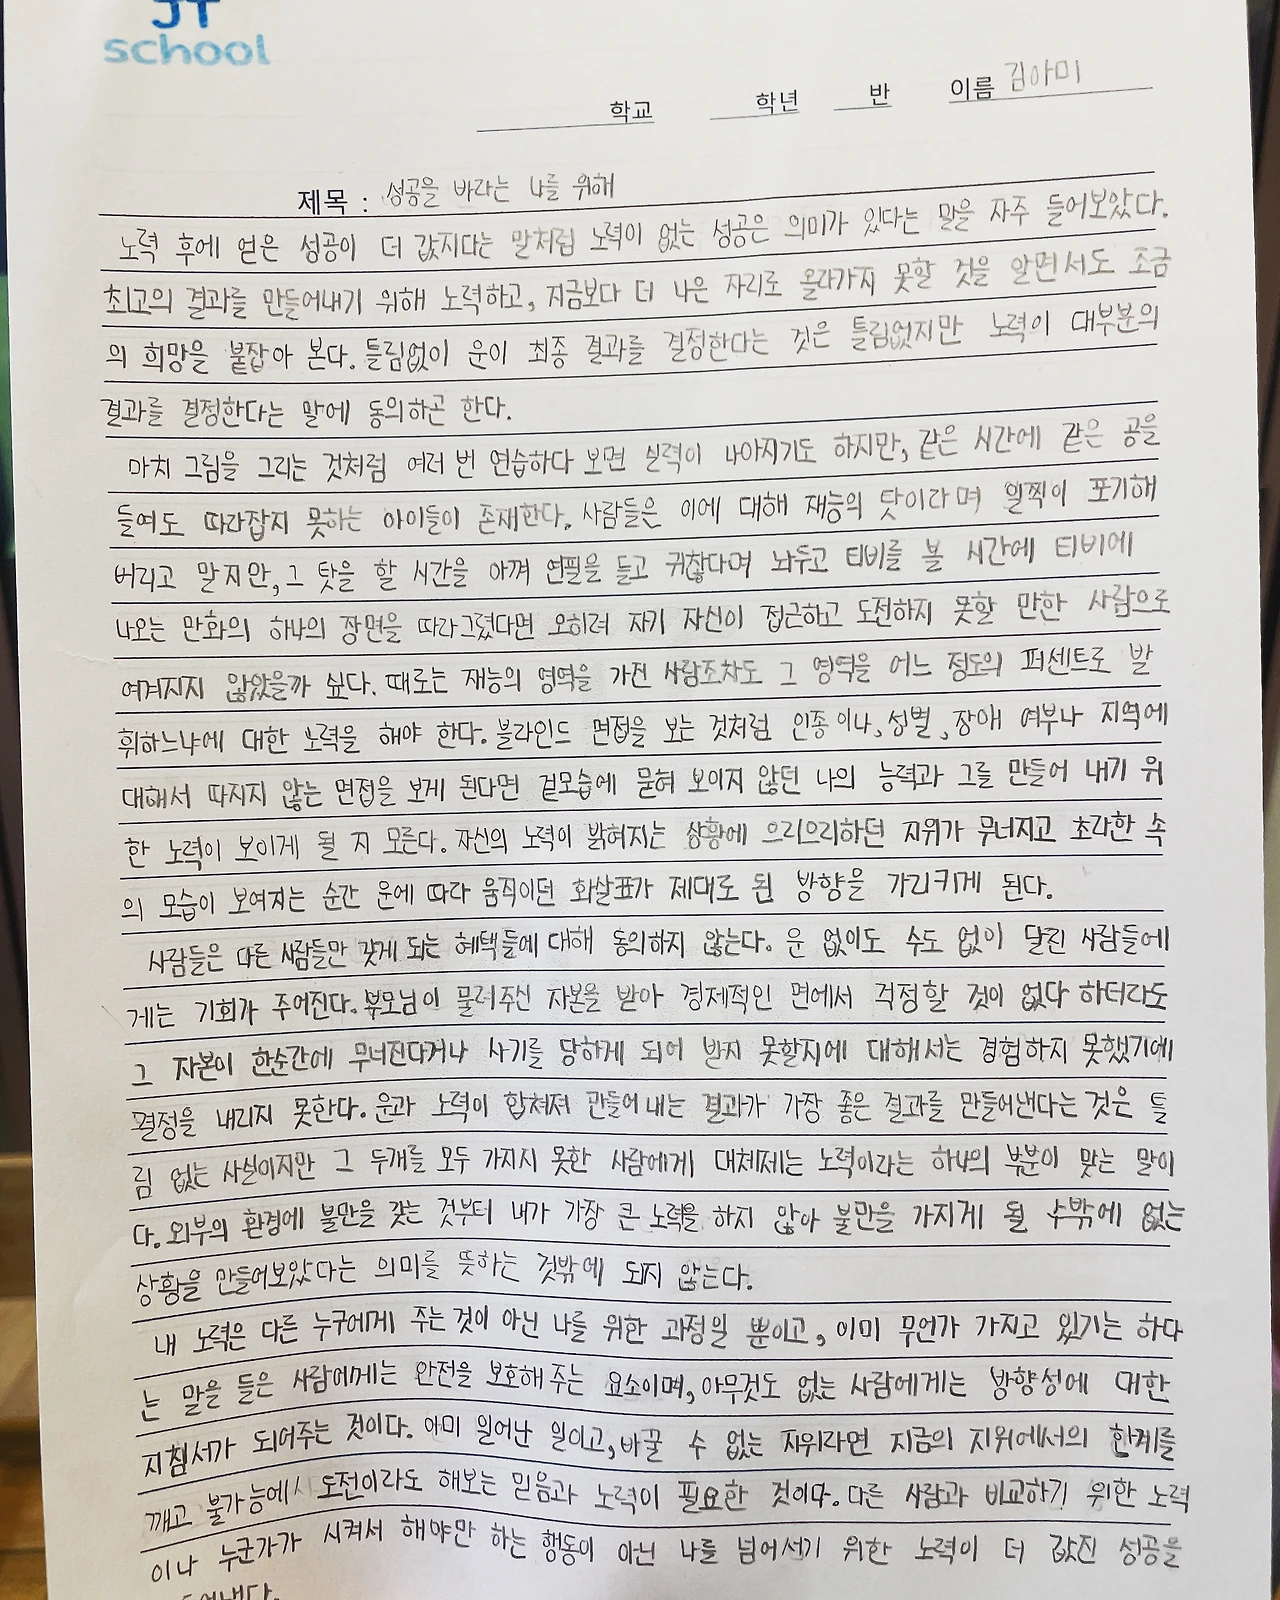 JT
school
학교 학년 반 이름 김아미
제목 : 성공을 바라는 나를 위해
노력 후에 얻은 성공이 더 값지다는 말처럼 노력이 없는 성공은 의미가 있다는 말을 자주 들어보았다.
최고의 결과를 만들어내기 위해 노력하고, 지금보다 더 나은 자리로 올라가지 못할 것을 알면서도 조금
의 희망을 붙잡아 본다. 틀림없이 운이 최종 결과를 결정한다는 것은 틀림없지만 노력이 대부분의
결과를 결정한다는 말에 동의하곤 한다.
마치 그림을 그리는 것처럼 여러 번 연습하다 보면 실력이 나아지기도 하지만, 같은 시간에 같은 공을
들여도 따라잡지 못하는 아이들이 존재한다. 사람들은 이에 대해 재능의 탓이라며 일찍이 포기해
버리고 말지만, 그 탓을 할 시간을 아껴 연필을 들고 귀찮다며 놔두고 티비를 볼 시간에 티비에
나오는 만화의 하나의 장면을 따라그렸다면 오히려 자기 자신이 접근하고 도전하지 못할 만한 사람으로
여겨지지 않았을까 싶다. 때로는 재능의 영역을 가진 사람조차도 그 영역을 어느 정도의 퍼센트로 발
휘하느냐에 대한 노력을 해야 한다. 블라인드 면접을 보는 것처럼 인종이나, 성별, 장애 여부나 지역에
대해서 따지지 않는 면접을 보게 된다면 겉모습에 묻혀 보이지 않던 나의 능력과 그를 만들어 내기 위
한 노력이 보이게 될 지 모른다. 자신의 노력이 밝혀지는 상황에 으리으리하던 지위가 무너지고 초라한 속
의 모습이 보여지는 순간 운에 따라 움직이던 화살표가 제대로 된 방향을 가리키게 된다.
사람들은 다른 사람들만 갖게 되는 혜택들에 대해 동의하지 않는다. 운 없이도 수도 없이 달린 사람들에
게는 기회가 주어진다. 부모님이 물려주신 자본을 받아 경제적인 면에서 걱정할 것이 없다 하더라도
그 자본이 한순간에 무너진다거나 사기를 당하게 되어 받지 못할지에 대해서는 경험하지 못했기에
결정을 내리지 못한다. 운과 노력이 합쳐져 만들어 내는 결과가 가장 좋은 결과를 만들어낸다는 것은 틀
림 없는 사실이지만 그 두개를 모두 가지지 못한 사람에게 대체제는 노력이라는 하나의 부분이 맞는 말이
다. 외부의 환경에 불만을 갖는 것부터 내가 가장 큰 노력을 하지 않아 불만을 가지게 될 수밖에 없는
상황을 만들어보았다는 의미를 뜻하는 것밖에 되지 않는다.
내 노력은 다른 누구에게 주는 것이 아닌 나를 위한 과정일 뿐이고, 이미 무언가 가지고 있기는 하다
는 말을 들은 사람에게는 안전을 보호해 주는 요소이며, 아무것도 없는 사람에게는 방향성에 대한
지침서가 되어주는 것이다. 이미 일어난 일이고, 바꿀 수 없는 지위라면 지금의 지위에서의 한계를
깨고 불가능에서 도전이라도 해보는 믿음과 노력이 필요한 것이다. 다른 사람과 비교하기 위한 노력
이나 누군가가 시켜서 해야만 하는 행동이 아닌 나를 넘어서기 위한 노력이 더 값진 성공을